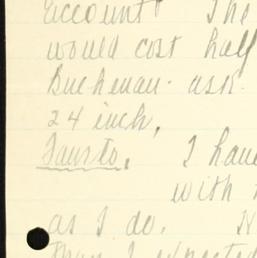 account? The
would cost half
Buchenau - ask.
24 inch.
Fausto. I have
with
as I do.
than I expected